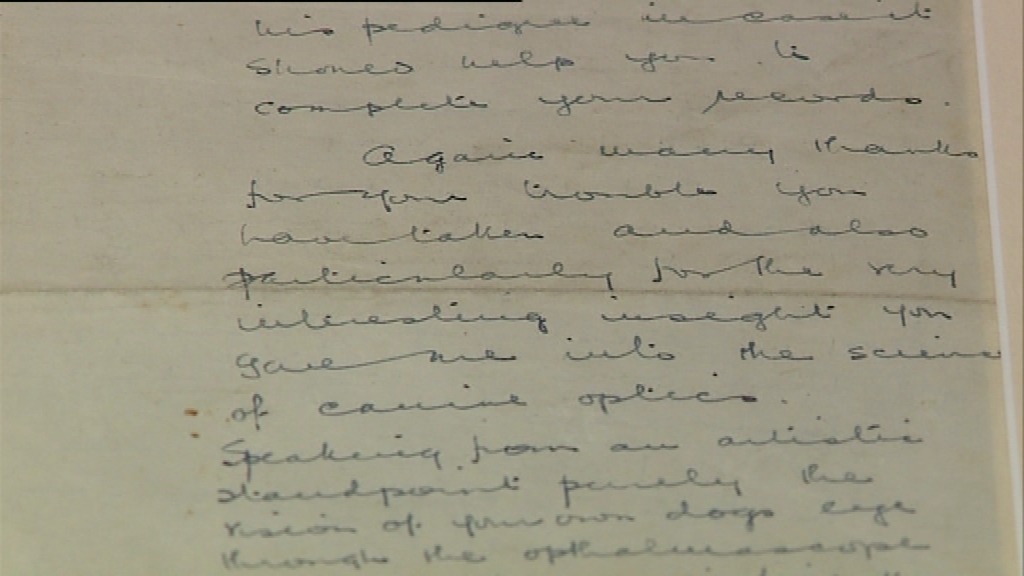 his pedigree in case it
should help you to
complete your records.
Again many thanks
for your trouble you
have taken and also
particularly for the very
interesting insight you
gave me into the science
of canine optics.
Speaking from an artistic
standpoint purely the
vision of your own dogs eye
through the opthalmoscope